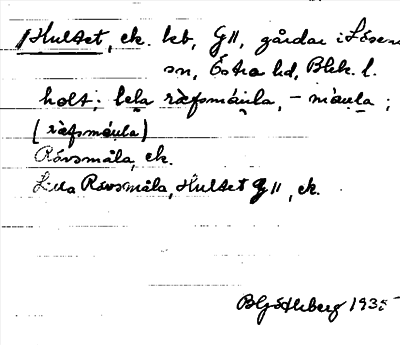 Hultet, ek. kb, G11, gårdar i Lösens
sn, Östra hd, Blek. l.
holt; lela ræfsmåula, – måula;
(ræfsmåula)
Rävsmåla, ek.
Lilla Rävsmåla, Hultet G11, ek.
B Göthberg 1935